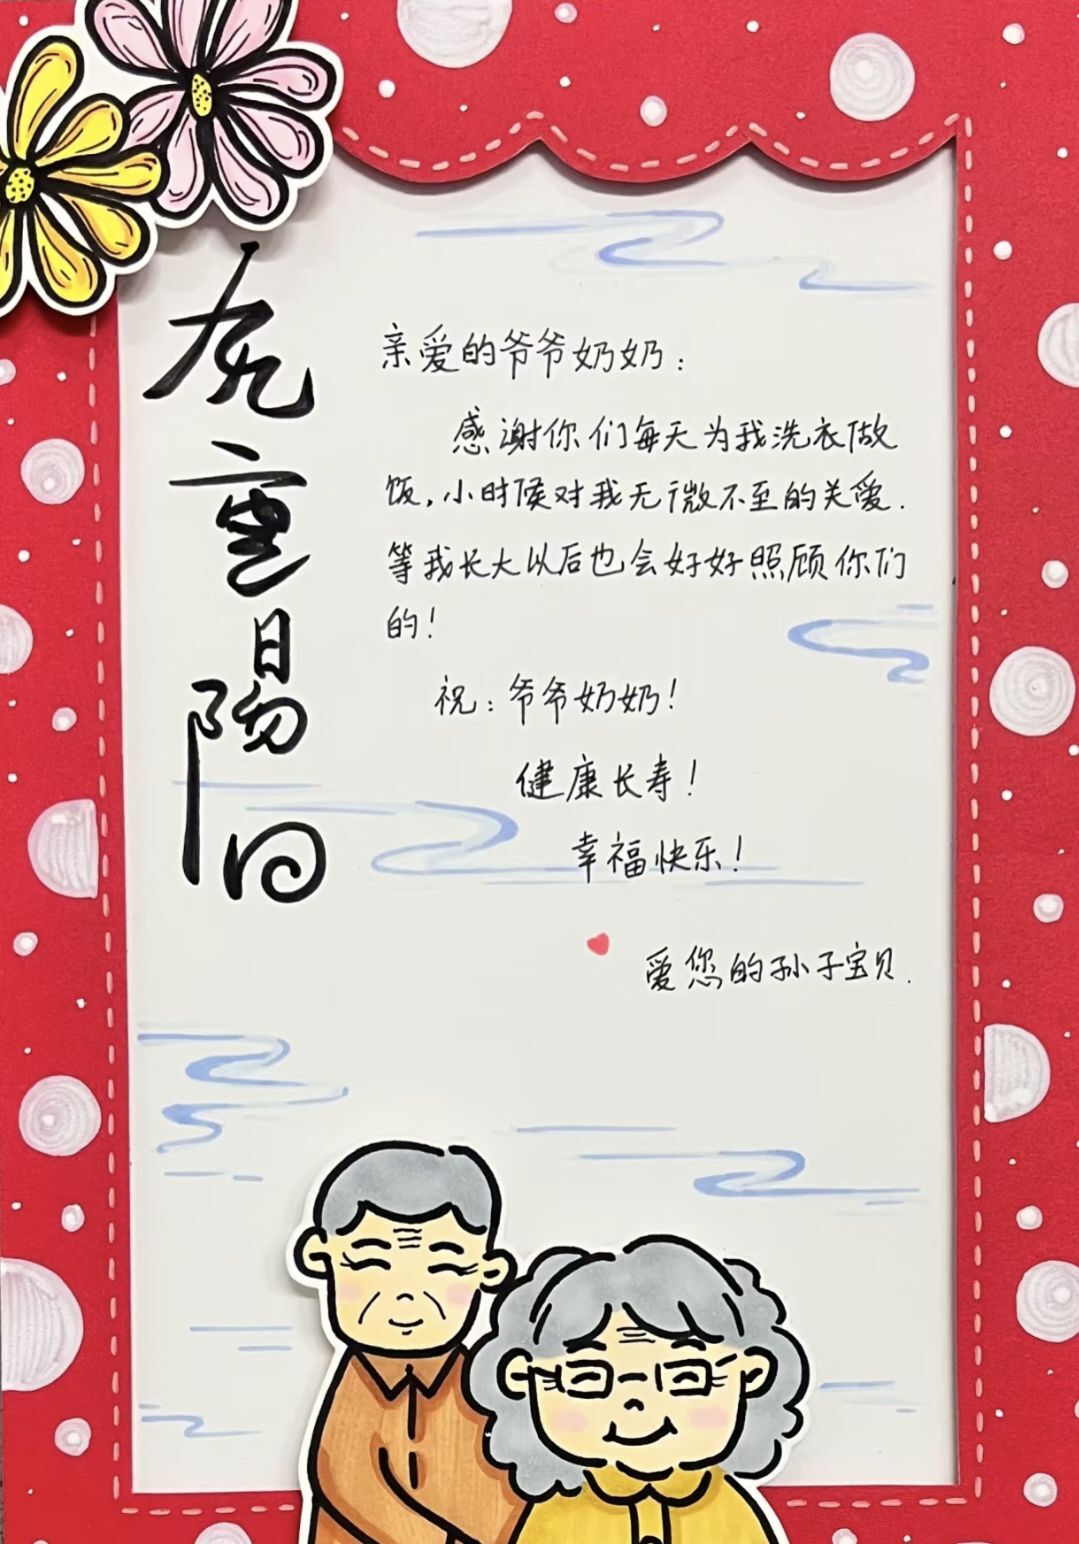 九重阳日
亲爱的爷爷奶奶:
感谢你们每天为我洗衣做
饭,小时候对我无微不至的关爱.
等我长大以后也会好好照顾你们
的!
祝:爷爷奶奶!
健康长寿!
幸福快乐!
爱您的孙子宝贝.